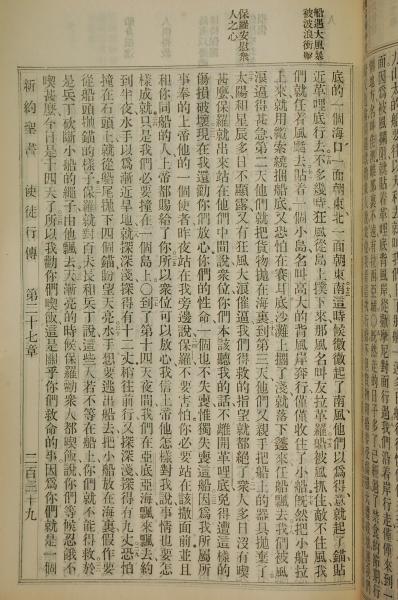 船遇大風暴
被波浪衝壓
保羅安慰衆
人之心
底的一個海口一面朝東北一面朝東南這時候微微起了南風他們以爲得意就起了錨貼
近革哩底行去不多幾時狂風從島上撲下來那風名叫友拉革羅船被風抓住敵不住風我
們就任着風飄去貼着一個小島名叫高大的背風岸奔行僅僅收住了小船旣然把小船拉
上來就用纜索繞捆船底又恐怕在賽耳底沙灘上擱了淺就落下篷來任船飄去我們被風
浪逼得甚急第二天他們就把貨物拋在海裏到第三天他們又親手把船上的器具拋棄了
太陽和星辰多日不顯露又有狂風大浪催逼我們得救的指望就都絕了衆人多日沒有喫
甚麼保羅就出來站在他們中間說衆位你們本該聽我的話不離開革哩底免得遭這樣的
傷損破壞現在我還勸你們放心你們的性命一個也不失喪惟獨失喪這船因爲我所屬所
事奉的上帝他的一個使者昨夜站在我旁邊說保羅不要害怕你必要站在該撒面前並且
和你同船的人上帝都賜給了你所以衆位可以放心我信上帝他怎樣對我說事情也要怎
樣成就只是我們必要撞在一個島上○到了第十四天夜間我們在亞底亞海飄來飄去約
到半夜水手以爲漸近旱地就探深淺探得有十二丈稍往前行又探深淺探得有九丈恐怕
撞在石頭上就從船尾拋下四個錨盼望天亮水手想要逃出船去把小船放在海裏假作要
從船頭拋錨的樣子保羅就對百夫長和兵丁說這些人若不等在船上你們就不能得救於
是兵丁砍斷小船的繩子由他飄去天漸亮的時候保羅勸衆人都喫飯說你們等候忍餓不
喫甚麼今日是十四天了所以我勸你們喫飯這是關乎你們救命的事因爲你們就是一個
新約聖書　使徒行傳　第二十七章　二百三十九